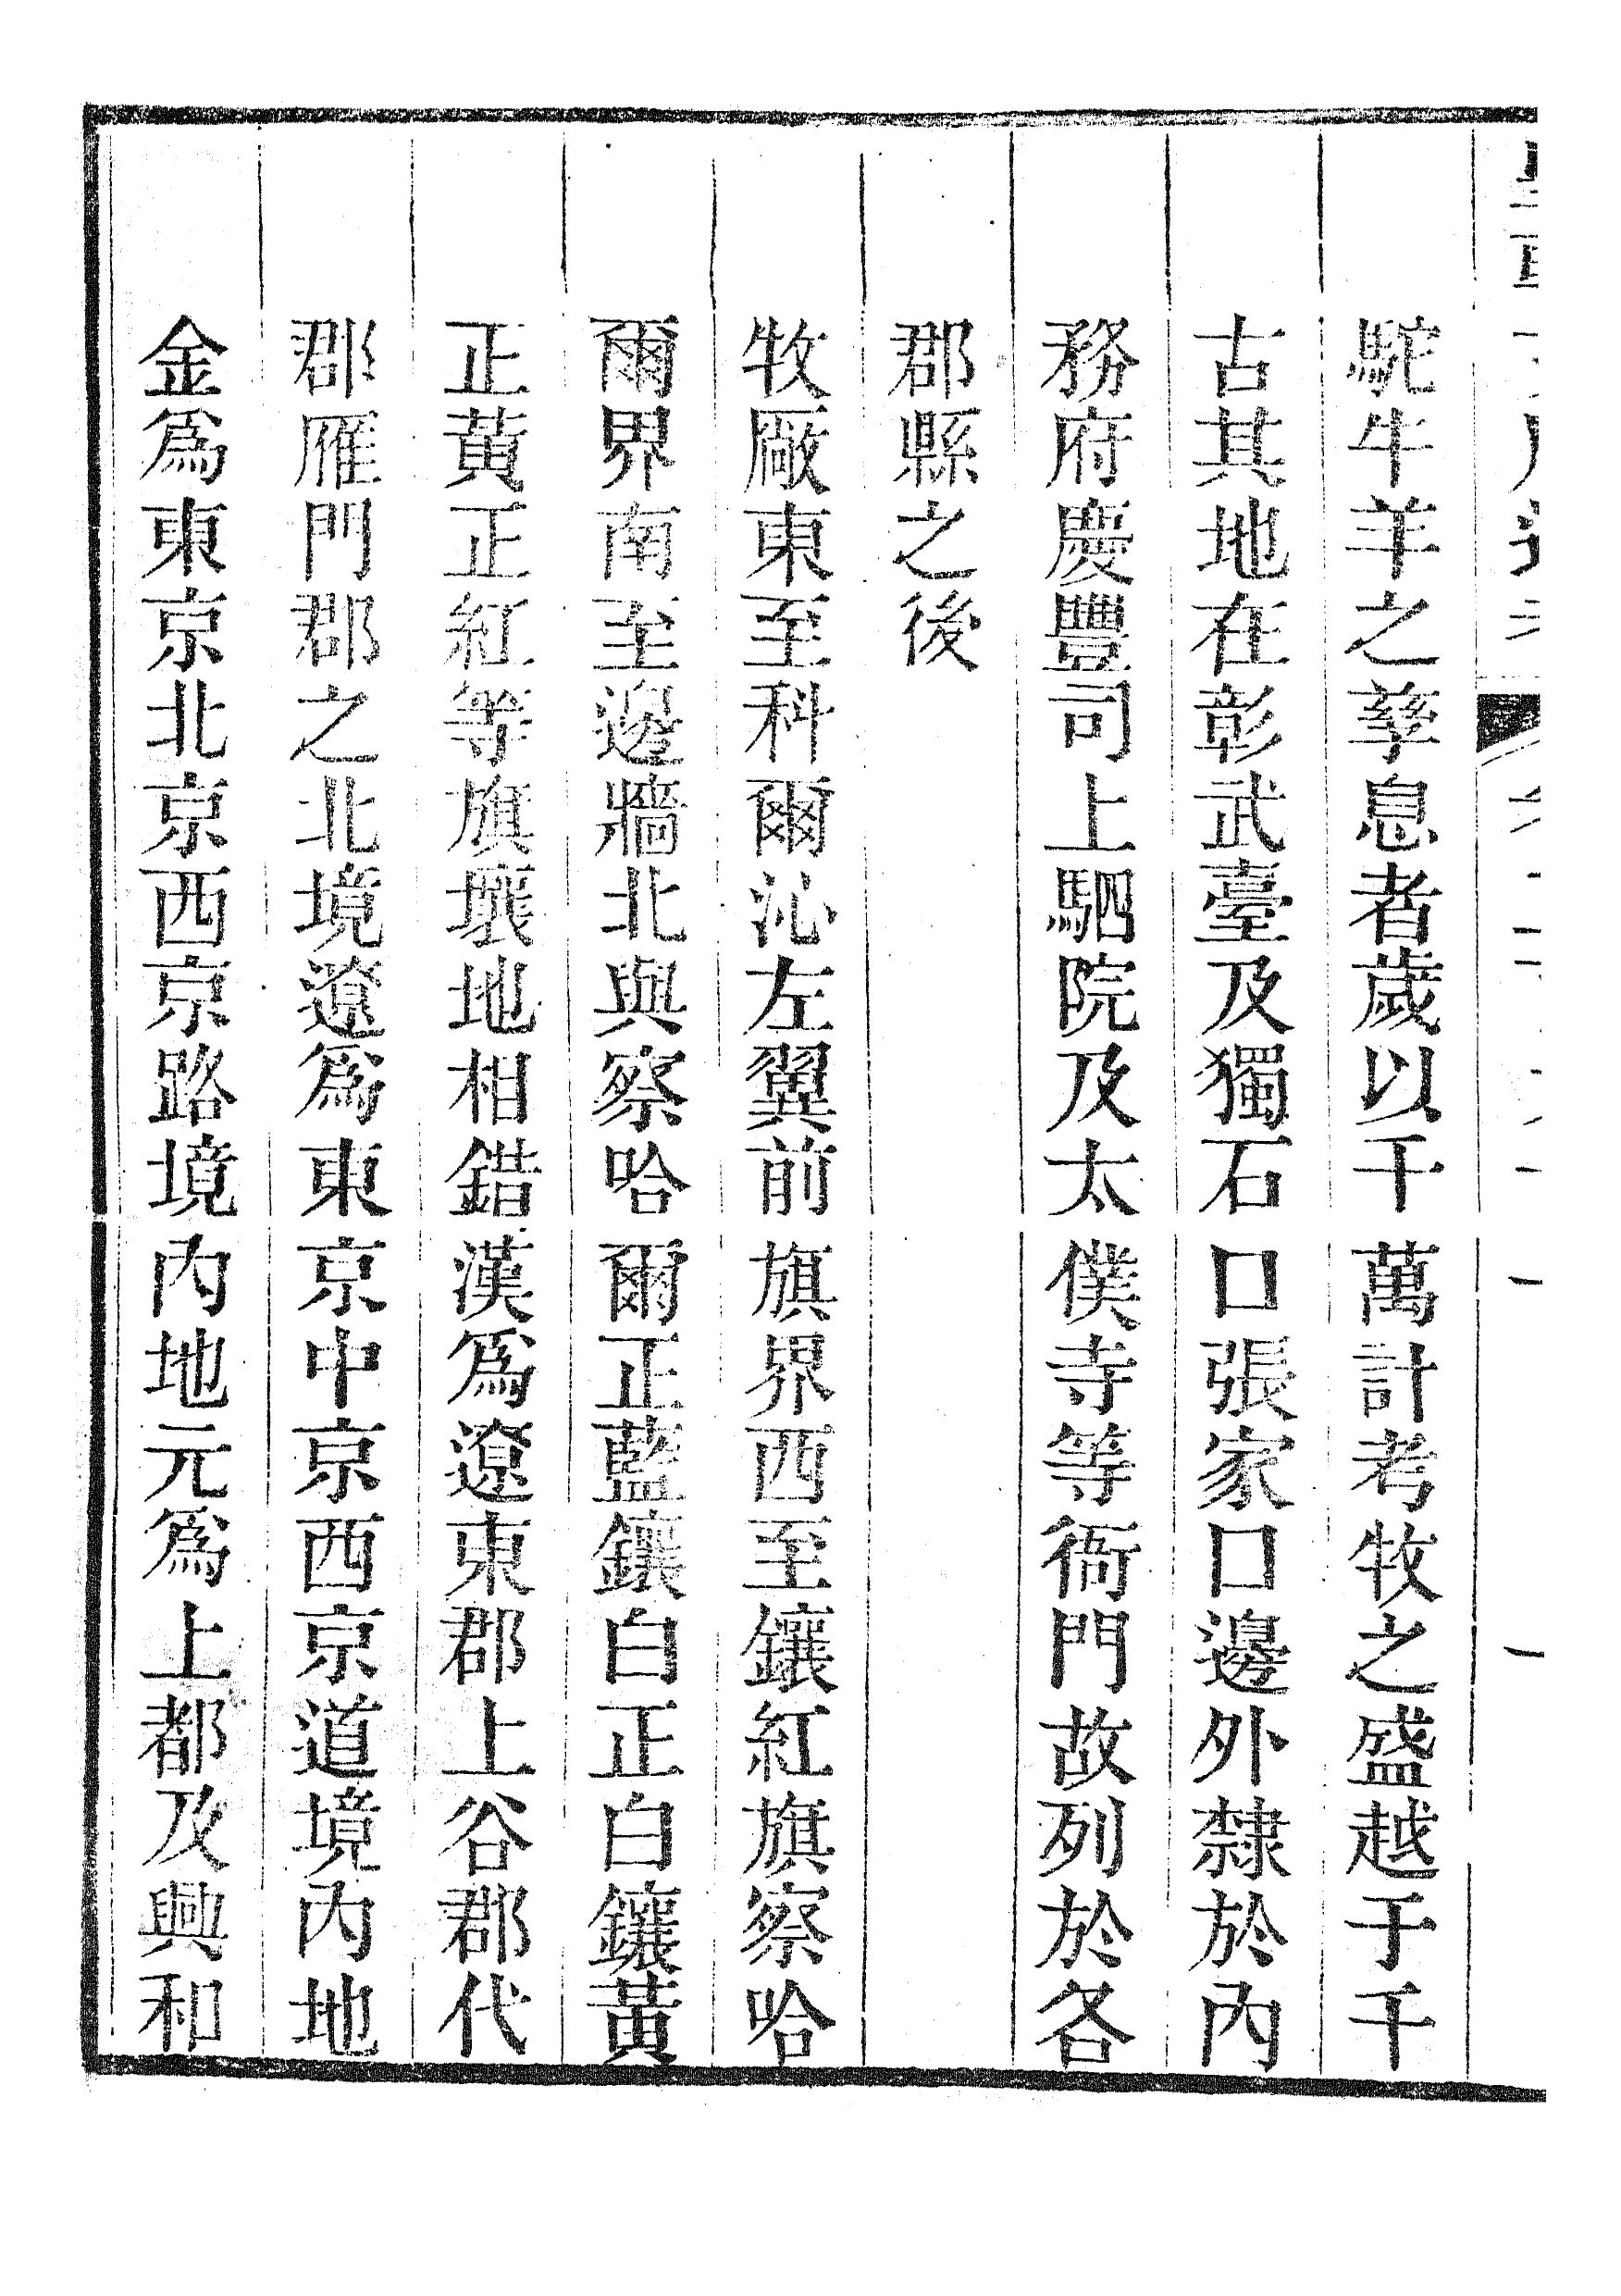 駝牛羊之孳息者歲以千萬計考牧之盛越于千
古其地在彰武臺及獨石口張家口邊外隸於內
務府慶豐司上駟院及太僕寺等衙門故列於各
郡縣之後
牧厰東至科爾沁左翼前旗界西至鑲紅旗察哈
爾界南至邊牆北與察哈爾正藍鑲白正白鑲黃
正黃正紅等旗壤地相錯漢爲遼東郡上谷郡代
郡雁門郡之北境遼爲東京中京西京道境內地
金爲東京北京西京路境內地元爲上都及興和